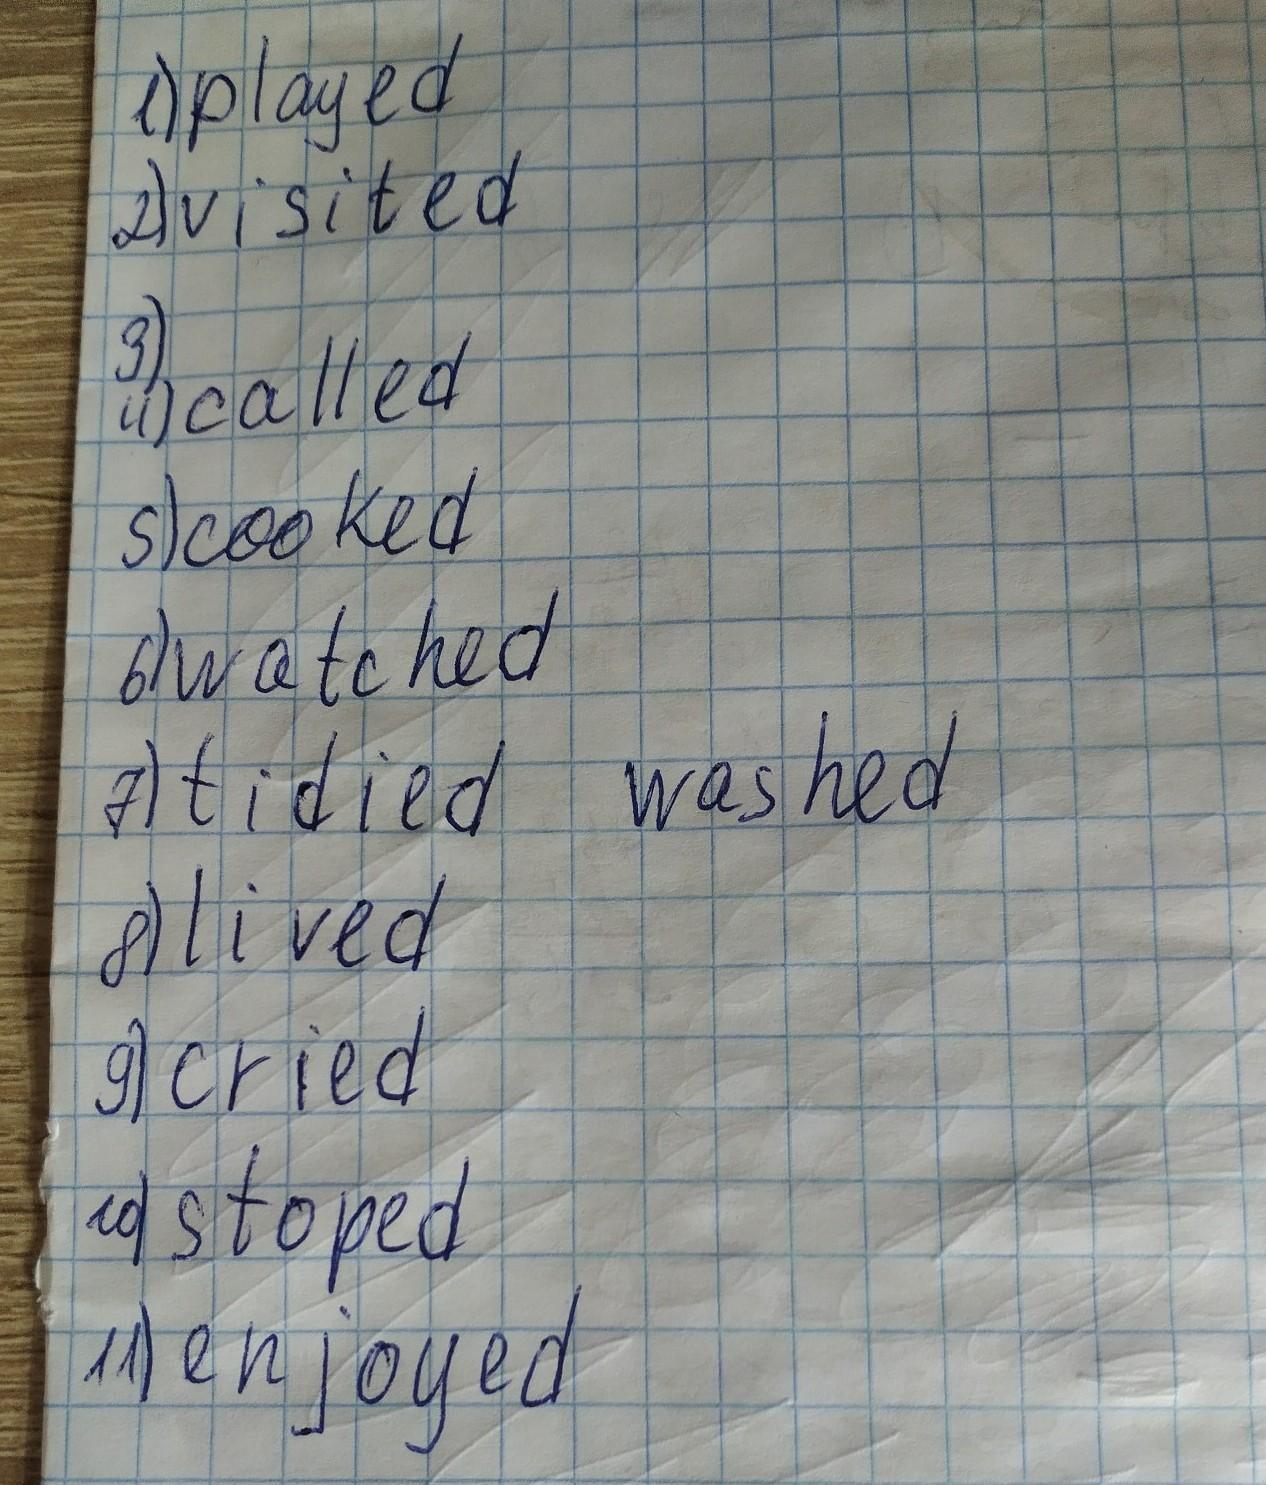 1) played
2) visited
3)
4) called
5) cooked
6) watched
7) tidied washed
8) lived
9) cried
10) stoped
11) enjoyed